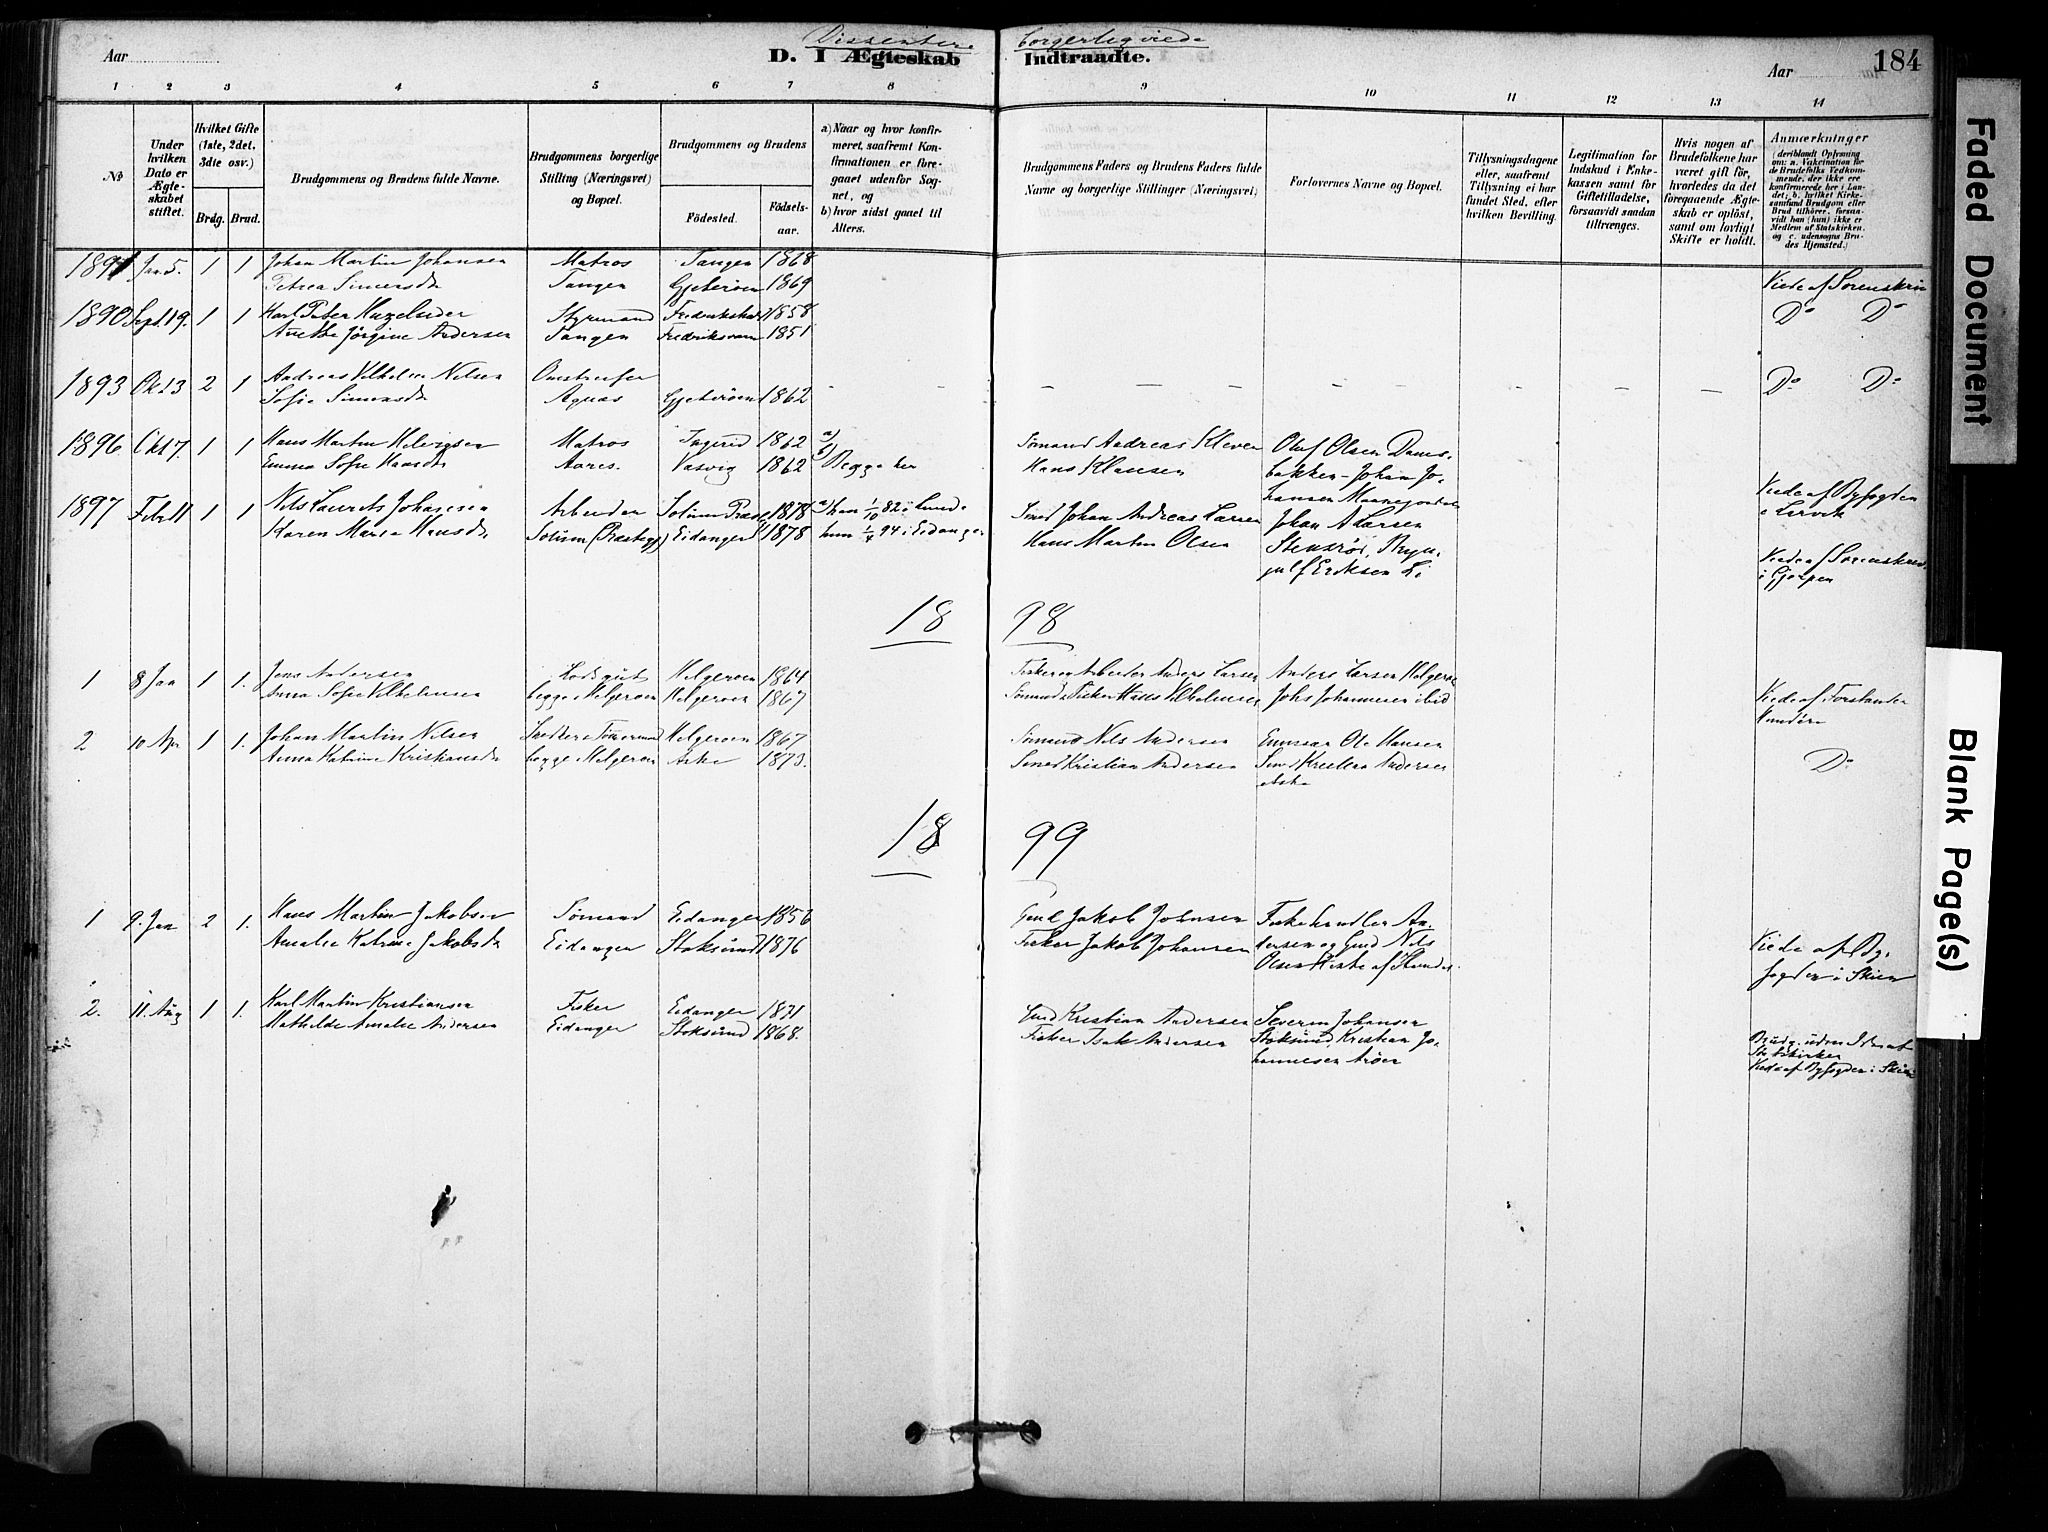 Dissentere borgerlig viede
Aar D. I Ægteskab Indtraadte. Aar 184
1 2 3 4 5 6 7 8 9 10 11 12 13 14
No
Under hvilken Dato er Ægteskabet stiftet.
Hvilket Gifte (1ste, 2det, 3die osv.)
Brdg. Brud.
Brudgommens og Brudens fulde Navne.
Brudgommens borgerlige Stilling (Næringsvei) og Bopæl.
Brudgommens og Brudens
Födested.
Födselsaar.
a) Naar og hvor konfirmeret, saafremt Konfirmationen er foregaaet udenfor Sognet, og
b) hvor sidst gaaet til Alters.
Brudgommens Faders og Brudens Faders fulde Navne og borgerlige Stillinger (Næringsvei)
Forlovernes Navne og Bopæl.
Tillysningsdagene eller, saafremt Tillysning ei har fundet Sted, efter hvilken Bevilling.
Legitimation for Indskud i Enkekassen samt for Giftetilladelse, forsaavidt saadan tiltrænges.
Hvis nogen af Brudefolkene har været gift för, hvorledes da det foregaaende Ægteskab er oplöst, samt om lovligt Skifte er holdt.
Anmærkninger (deriblandt Oplysning om: a. Vakcination for de Brudefolks Vedkommende, der ikke ere konfirmerede her i Landet; b. hvilket Kirkesamfund Brudgom eller Brud tilhörer, forsaavidt han (hun) ikke er Medlem af Statskirken, og c. udensogns Brudes Hjemsted.)
1891 Jan 5. 1 1 Johan Martin Johansen Matros Tangen 1868
Petrea Simensdr Tangen Gjeterøen 1869 Viede af Sorenskriv
1890 Sept 19. 1 1 Karl Peter Styrmand Fredrikshald 1858 Do Do
Anethe Jörgine Andersen Tangen Fredriksværn 1851
1893 Okt 3 2 1 Andreas Vilhelm Nilsen - - - - - - Do Do
Sofie Simensdr Agnæs Gjeterøen 1862
1896 Okt 7. 1 1 Hans Martin Helvigsen Matros 1862 a) Sömand Andreas Kleven Oluf Olsen Dams-
Emma Sofie Hansdr Aarø. Vasvig 1862 b) Begge her Hans Klausen bakken - Johan Jo-
hansen
Viede af Byfogden i Larvik
1897 Febr 11 1 1 Nils Laurits Johansen Arbeider Solum 1878 a) han 1/10 82 i Lunde Sömd Johan Andreas Larsen Johan A Larsen
Karen Marie Hansdr Solum Eidanger 1878 hun 1/4 94 i Eidanger Hans Martin Olsen Stensröi, Bryn-
julf Eriksen Li
Viede af Sorenskriv.
i Gjerpen
18 98
1 8 Jan 1 1. Jens Andersen Lodsgut Helgeroen 1864 Fisker og Arbeider Anders Larsen Anders Larsen Helgeroa
Anna Sofie Vilhelmsen begge Helgeroen Helgeroen 1867 Sömand & Fisker Hans Vilhelmsen Johs Johannesen ibid
Viede af Forstander
2 10 Apr 1 1. Johan Martin Nilsen Helgeroen 1867 Sömand Nils Andersen Ole Hansen
Anna Katrine Kristiansdr begge Helgeroen Aske 1873. Sömd Kristian Andersen Sömd Kristian Andersen
Aske
Do
18 99
1 9. Jan 2 1. Hans Martin Jakobsen Sömand Eidanger 1856 Gmd Jakob Johnsen Fiskehandler An-
Amalie Katrine Jakobsdr Eidanger Stoksund 1876 Fisker Jakob Johansen dersen og Gmd Nils
Olsen
Viede af By-
fogden i Skien
2. 11. Aug 1 1. Karl Martin Kristiansen Fisker Eidanger 1871 Gmd Kristian Andersen Severin Johansen
Mathilde Amalie Andersen Eidanger Stoksund 1868. Fisker Isak Andersen Stoksund, Kristian Jo-
hannesen Arøen
Brudg. udenfor
Statskirken
Viede af Byfogden i Skien
Faded Document
Blank Page(s)